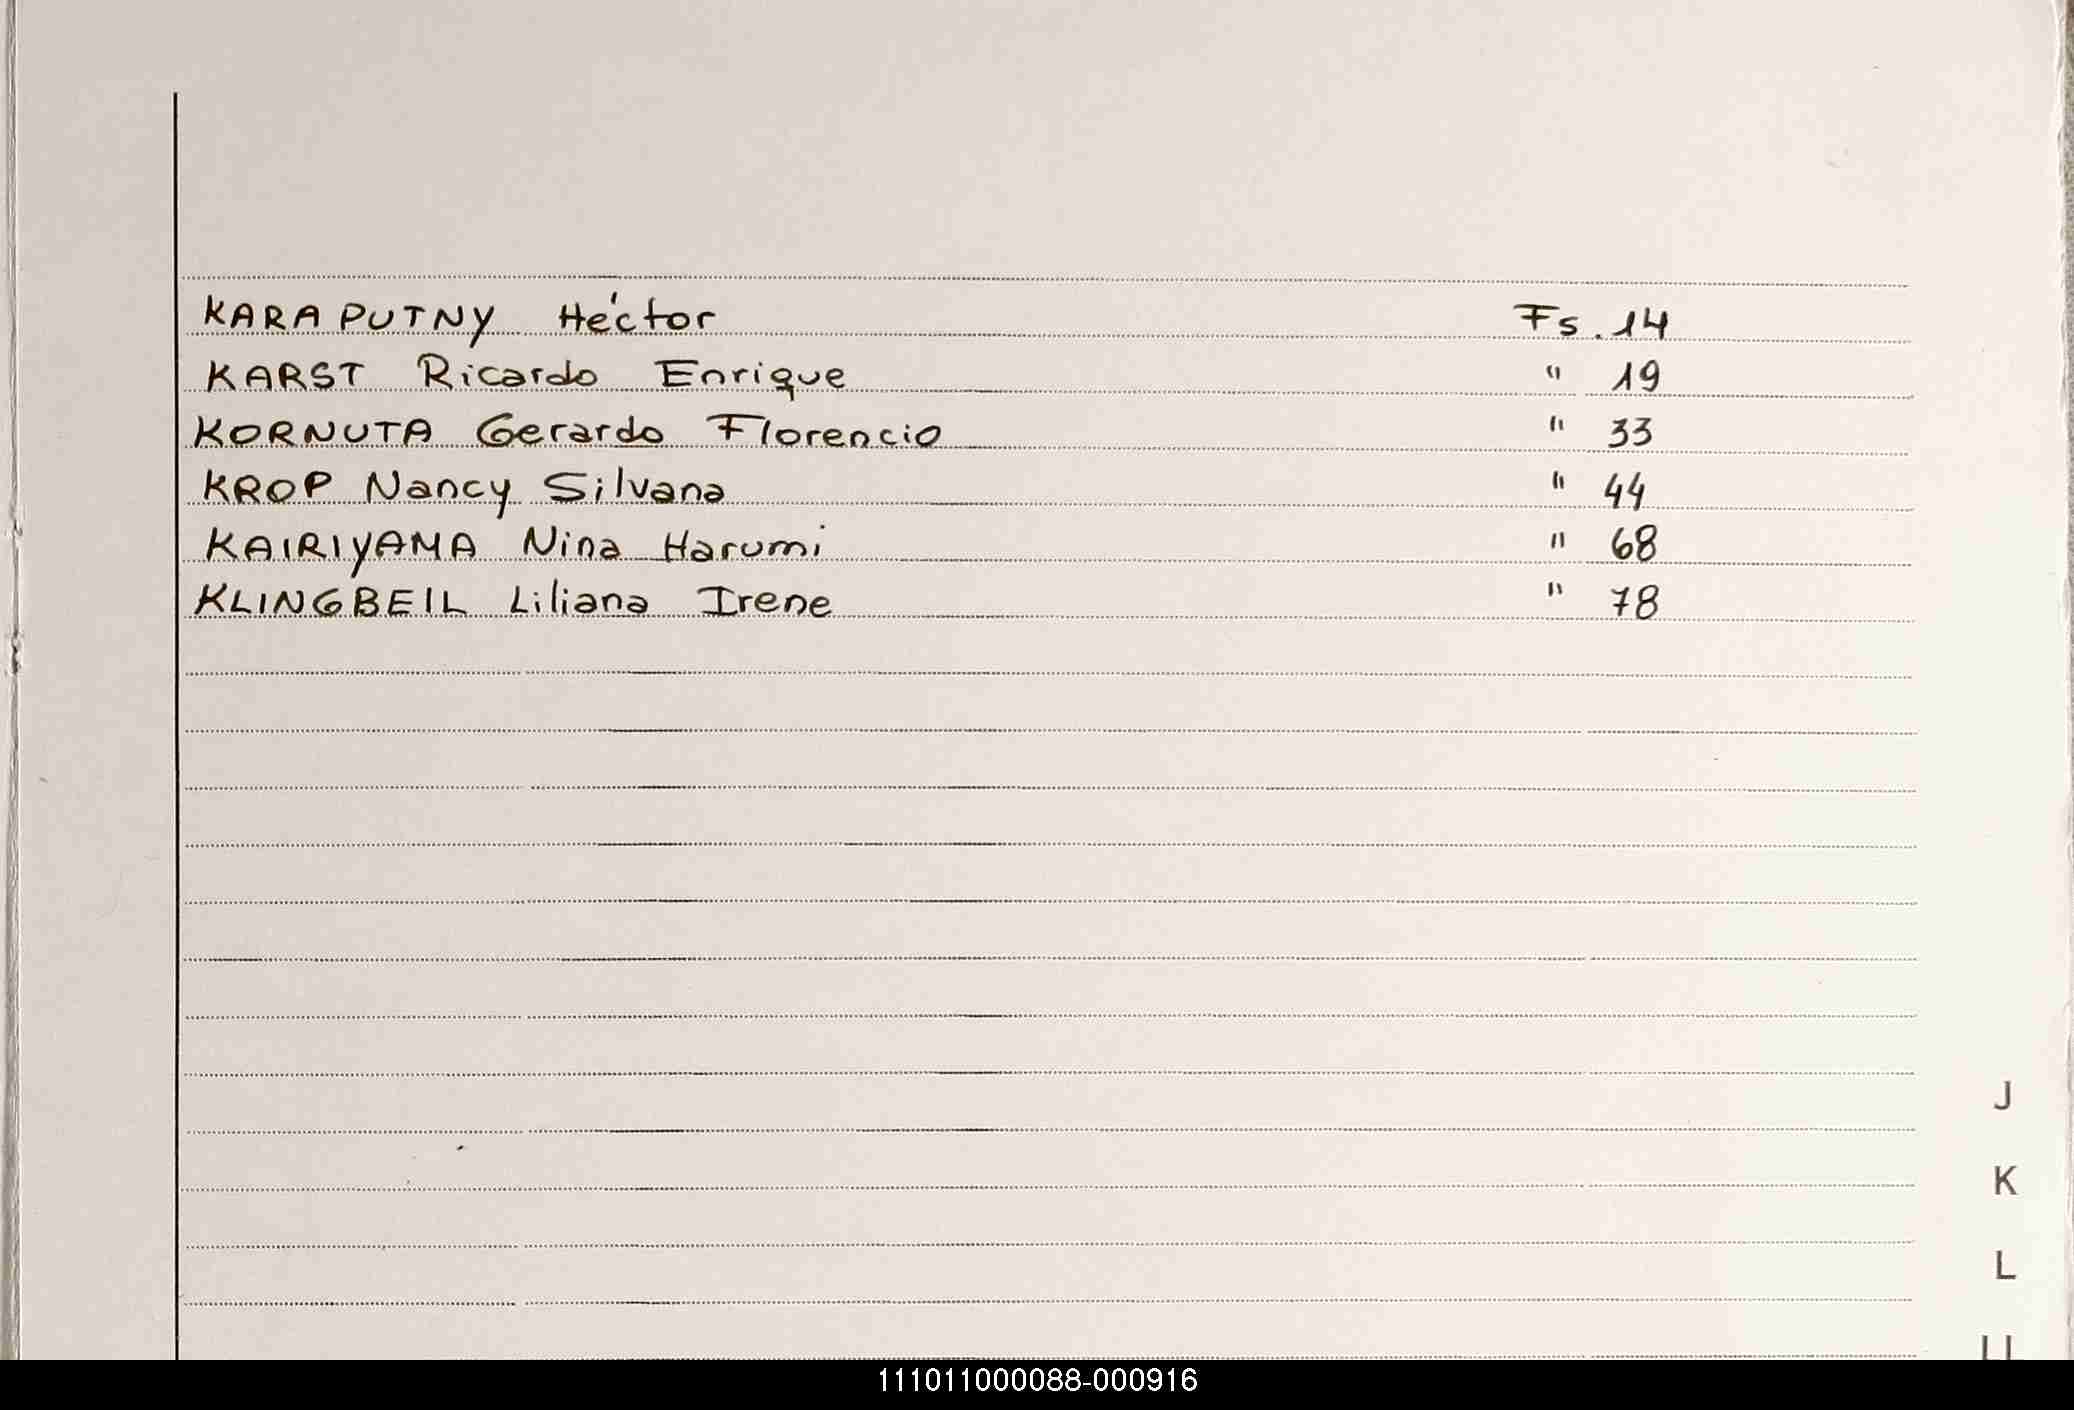 KARAPUTNY Héctor Fs. 14
KARST Ricardo Enrique " 19
KORNUTA Gerardo Florencio " 33
KROP Nancy Silvana " 44
KAIRIYAMA Nina Harumi " 68
KLINGBEIL Liliana Irene " 78
J
K
L
LL
111011000088-000916